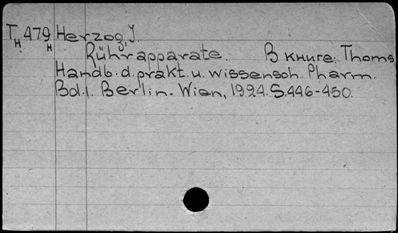 T 479 Herzog, J.
H H
Rührapparate. В книге: Thoms
Handb. d. prakt. u. wissensch. Pharm.
Bd.1. Berlin-Wien, 1924. S.446-450.